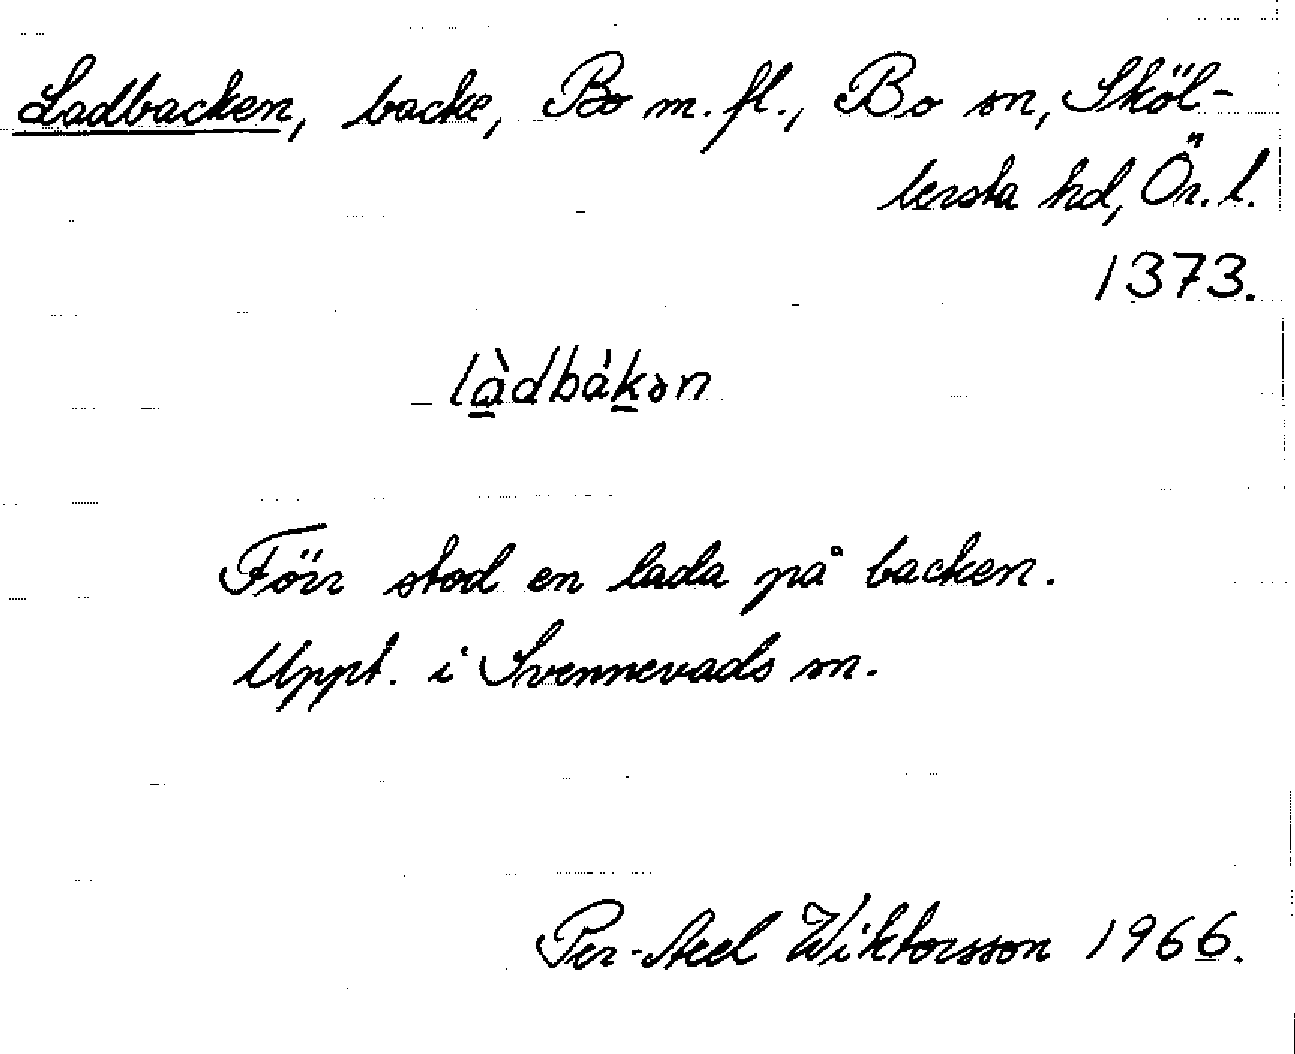 Ladbacken, backe, Bo m.fl., Bo sn, Sköl-
lersta hd, Ör. l.
1373.
là̱dbáḵən
Förr stod en lada på backen.
Uppt. i Svennevads sn.
Per-Axel Wiktorsson 1966.